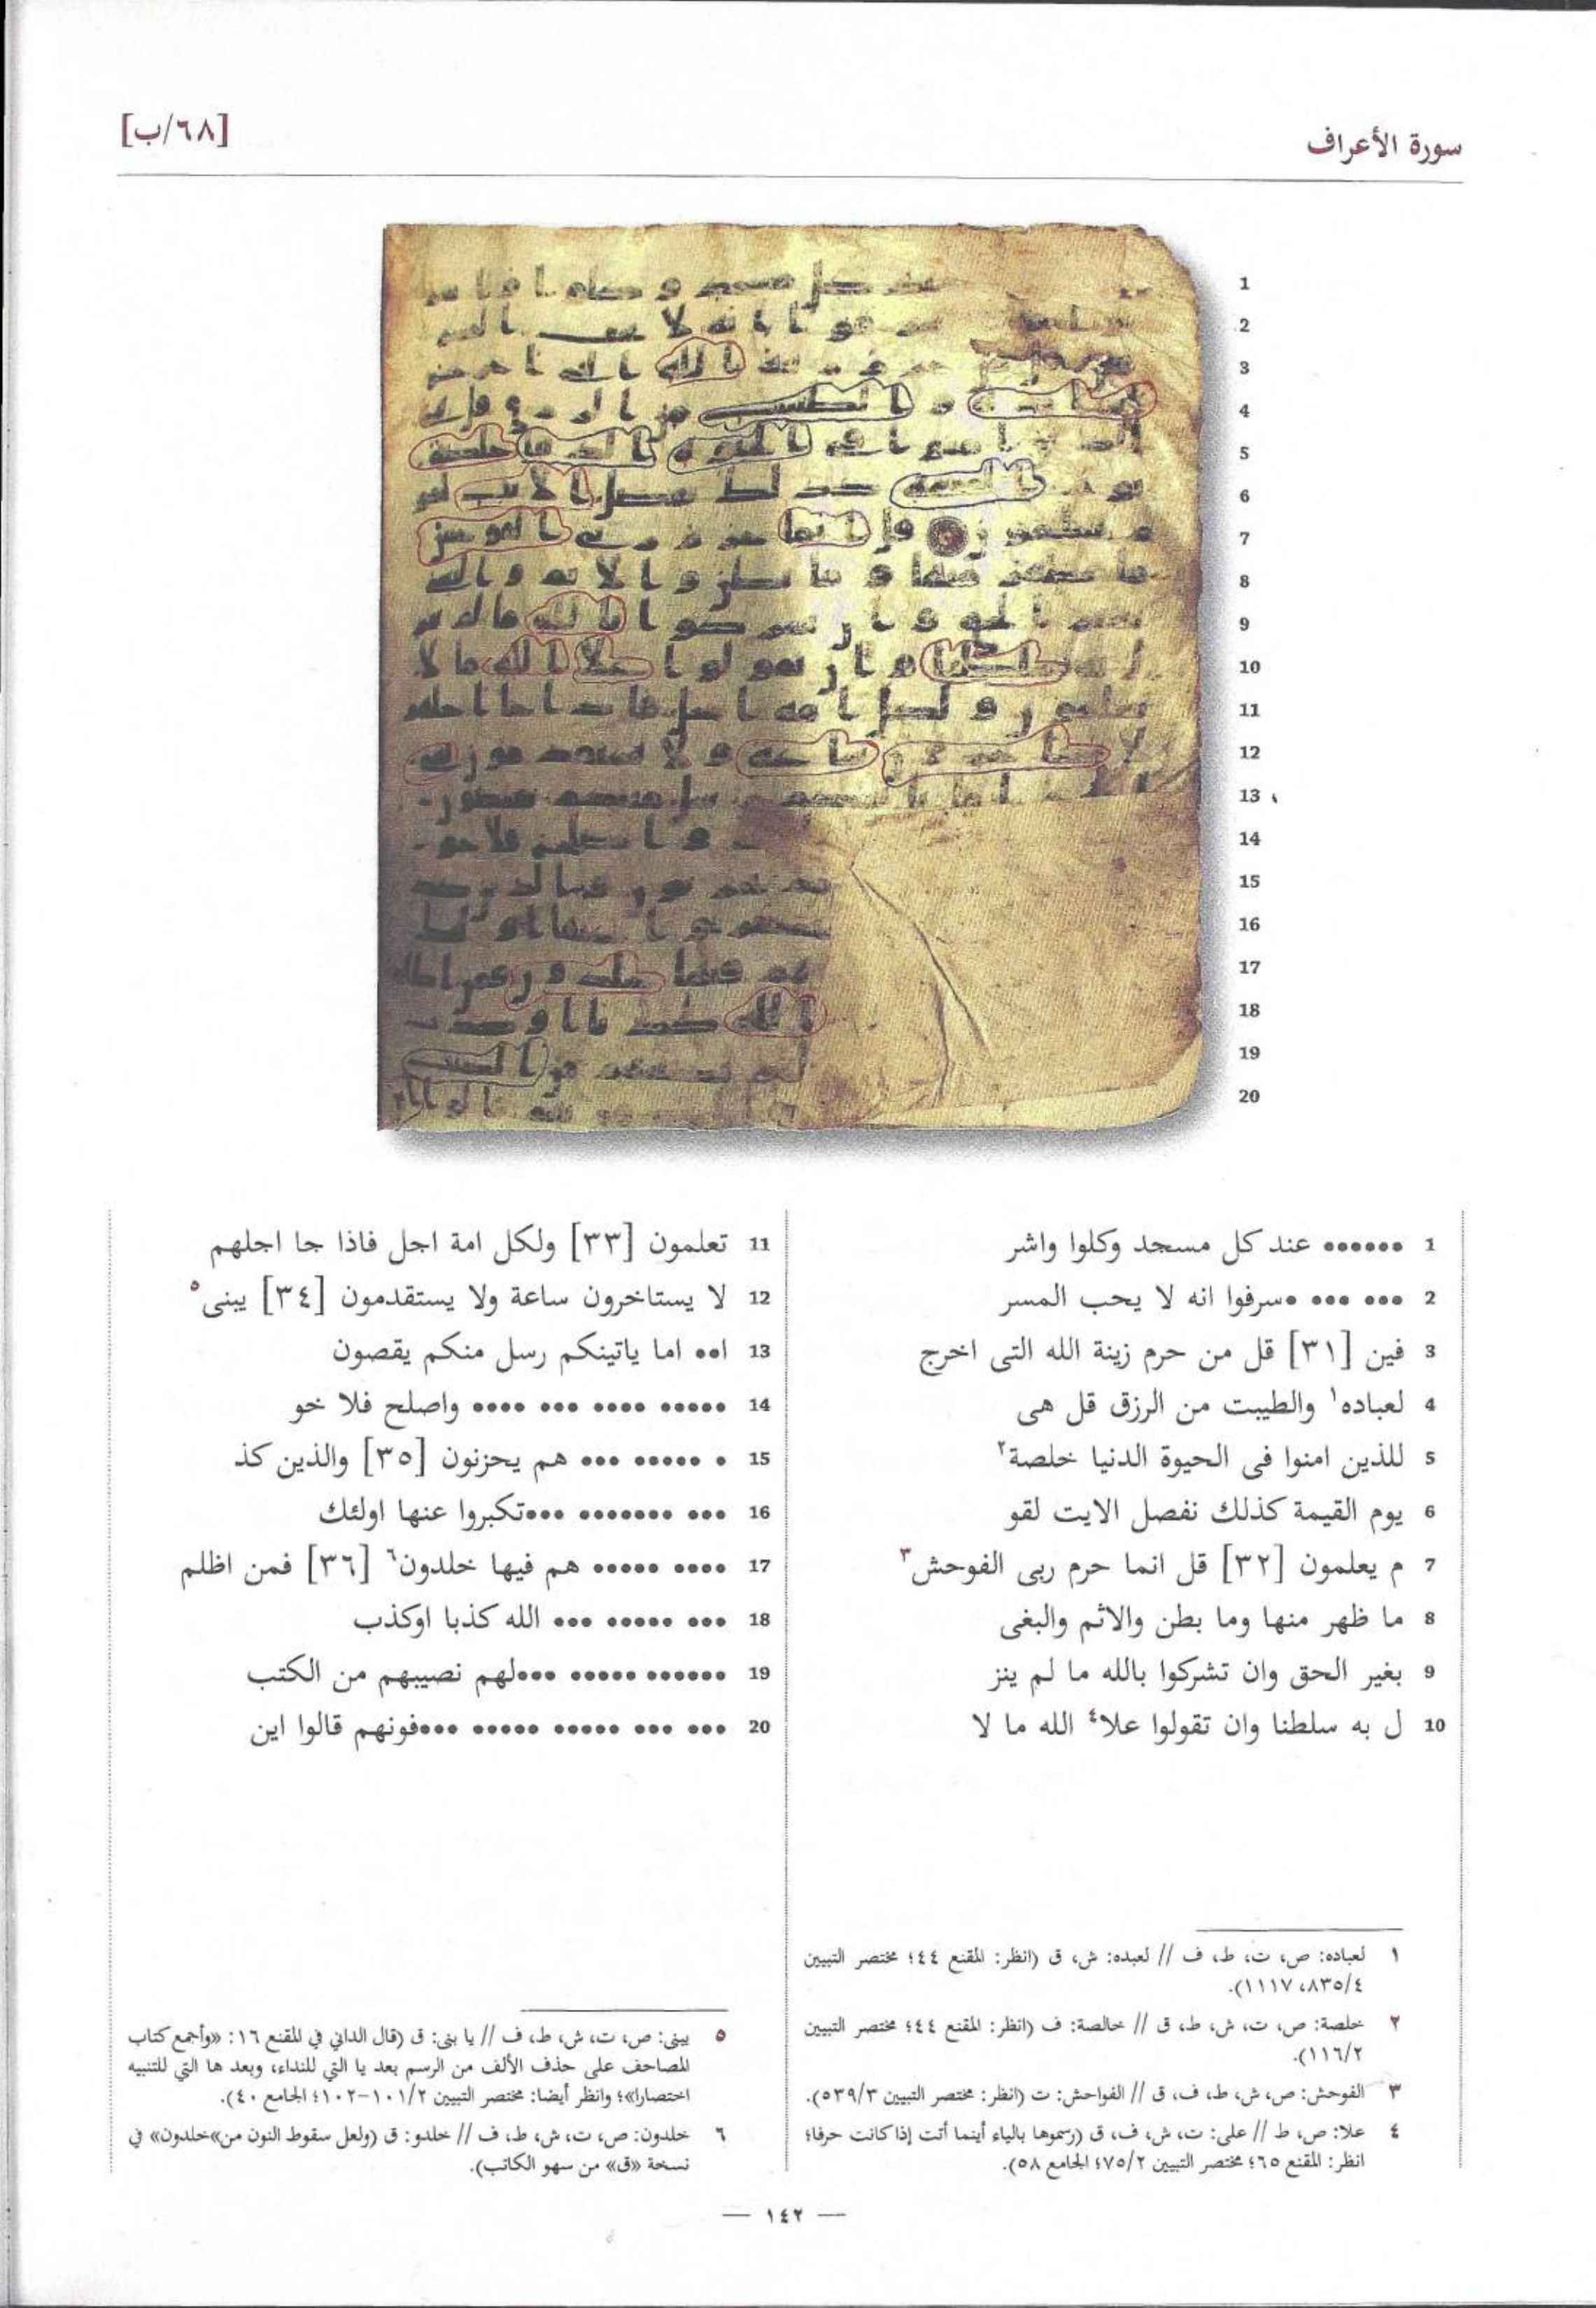 سورة الأعراف
[٦٨/ب]
1
2
3
4
5
6
7
8
9
10
11
12
13
14
15
16
17
18
19
20
1 •••••• عند كل مسجد وكلوا واشر
2 ••• ••• •سرفوا انه لا يحب المسر
3 فين [٣١] قل من حرم زينة الله التى اخرج
4 لعباده١ والطيبت من الرزق قل هى
5 للذين امنوا فى الحيوة الدنيا خلصة٢
6 يوم القيمة كذلك نفصل الايت لقو
7 م يعلمون [٣٢] قل انما حرم ربى الفوحش٣
8 ما ظهر منها وما بطن والاثم والبغى
9 بغير الحق وان تشركوا بالله ما لم ينز
10 ل به سلطنا وان تقولوا علا٤ الله ما لا
11 تعلمون [٣٣] ولكل امة اجل فاذا جا اجلهم
12 لا يستاخرون ساعة ولا يستقدمون [٣٤] يبنى٥
13 ا•• اما ياتينكم رسل منكم يقصون
14 ••••• •••• ••• •••• واصلح فلا خو
15 • ••••• ••• هم يحزنون [٣٥] والذين كذ
16 ••• ••••••• •••تكبروا عنها اولئك
17 •••• ••••• هم فيها خلدون٦ [٣٦] فمن اظلم
18 ••• ••••• ••• الله كذبا اوكذب
19 •••••• ••••• •••لهم نصيبهم من الكتب
20 ••• ••• ••••• ••••• •••فونهم قالوا اين
١ لعباده: ص، ت، ط، ف // لعبده: ش، ق (انظر: المقنع ٤٤؛ مختصر التبيين
٨٣٥/٤، ١١١٧).
٢ خلصة: ص، ت، ش، ط، ق // خالصة: ف (انظر: المقنع ٤٤؛ مختصر التبيين
١١٦/٢).
٣ الفوحش: ص، ش، ط، ف، ق // الفواحش: ت (انظر: مختصر التبيين ٥٣٩/٣).
٤ علا: ص، ط // على: ت، ش، ف، ق (رسموها بالياء أينما أتت إذا كانت حرفا؛
انظر: المقنع ٦٥؛ مختصر التبيين ٧٥/٢؛ الجامع ٥٨).
٥ يبنى: ص، ت، ش، ط، ف // يا بنى: ق (قال الداني في المقنع ١٦: «وأجمع كتاب
المصاحف على حذف الألف من الرسم بعد يا التي للنداء، وبعد ها التي للتنبيه
اختصارا»؛ وانظر أيضا: مختصر التبيين ١٠١/٢-١٠٢؛ الجامع ٤٠).
٦ خلدون: ص، ت، ش، ط، ف // خلدو: ق (ولعل سقوط النون من»خلدون» في
نسخة «ق» من سهو الكاتب).
— ١٤٢ —